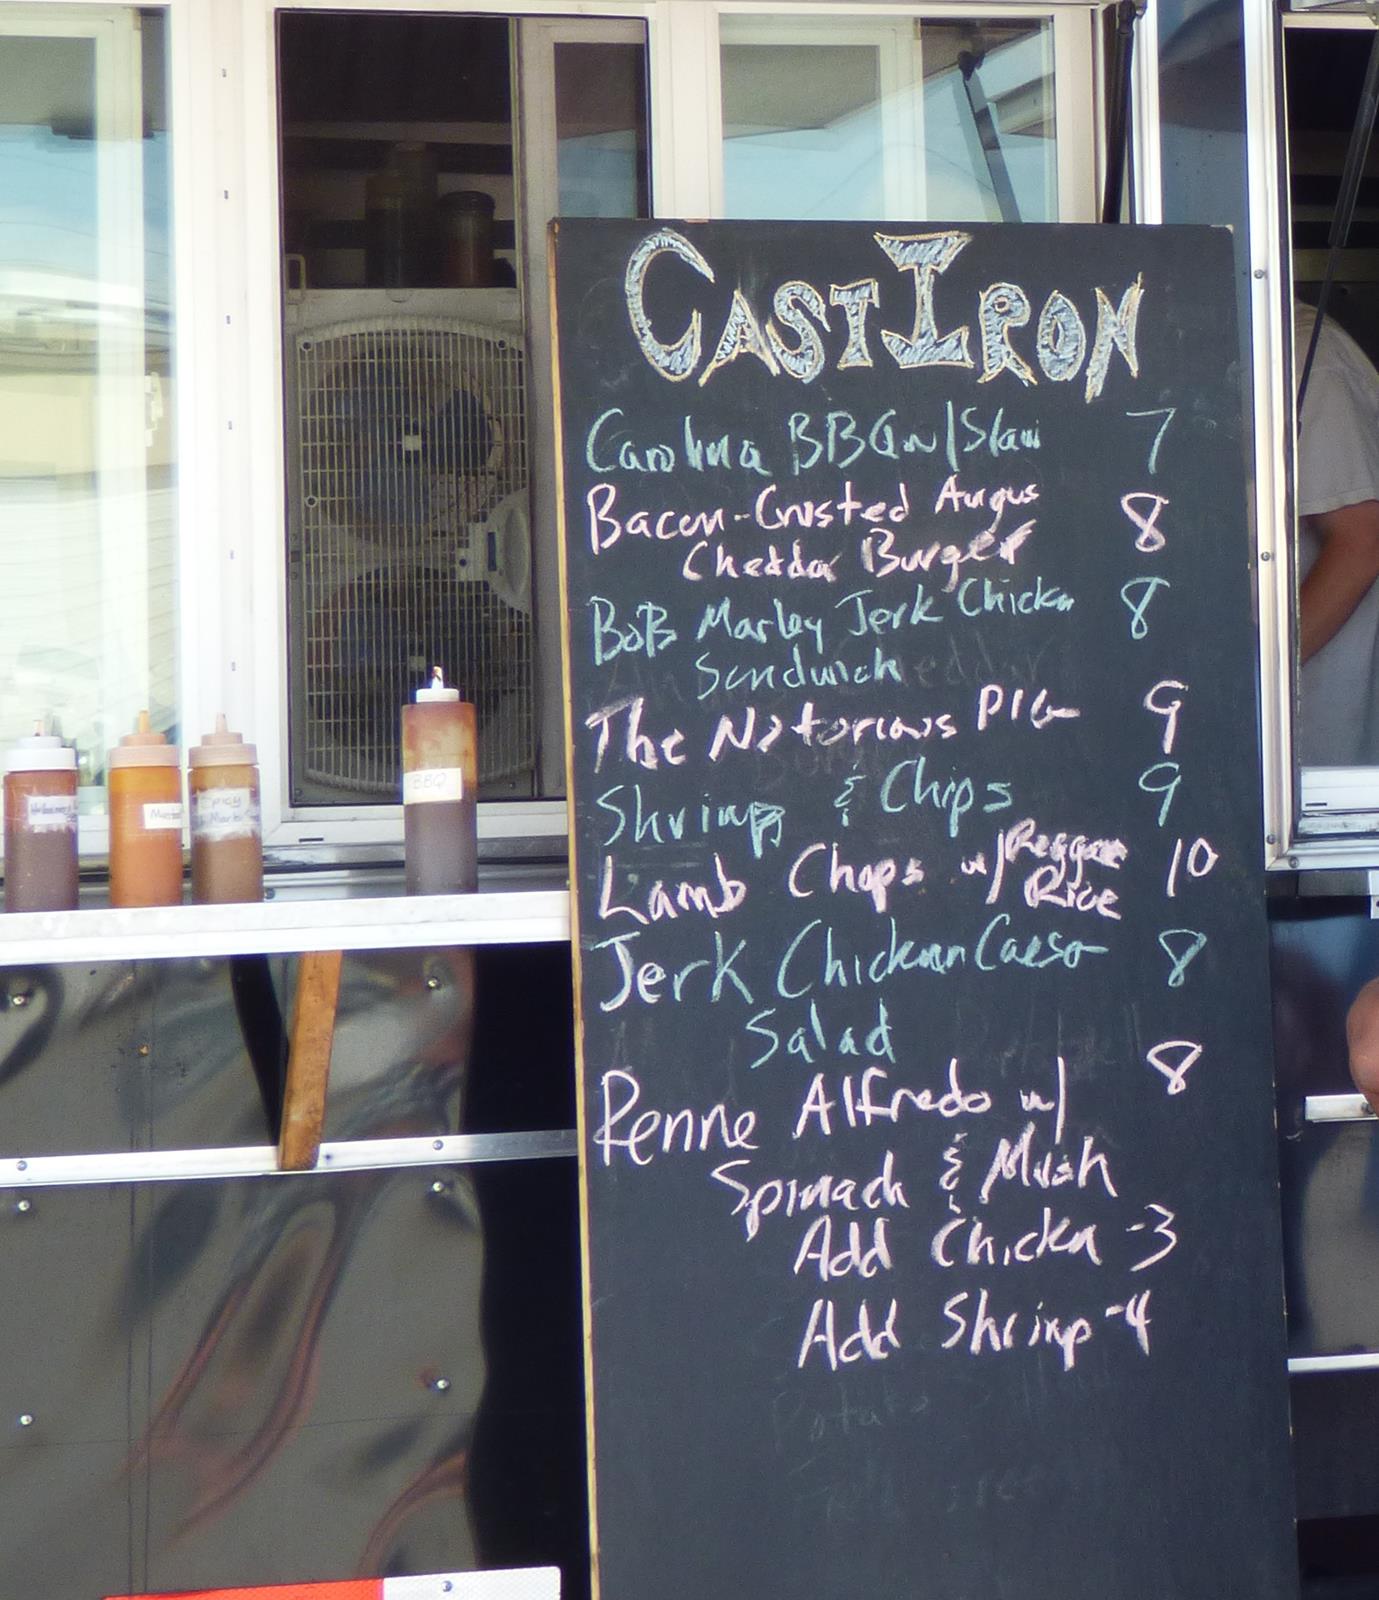 CAST IRON
Carolina BBQ w/Slaw 7
Bacon-Crusted Angus 8
Cheddar Burger
BoB Marley Jerk Chicken 8
Sandwich
The Notorious PIG 9
Shrimp & Chips 9
Lamb Chops w/Reggae 10
Rice
Jerk Chicken Caesar 8
Salad
Penne Alfredo w/ 8
Spinach & Mush
Add Chicken -3
Add Shrimp -4
BBQ
Spicy